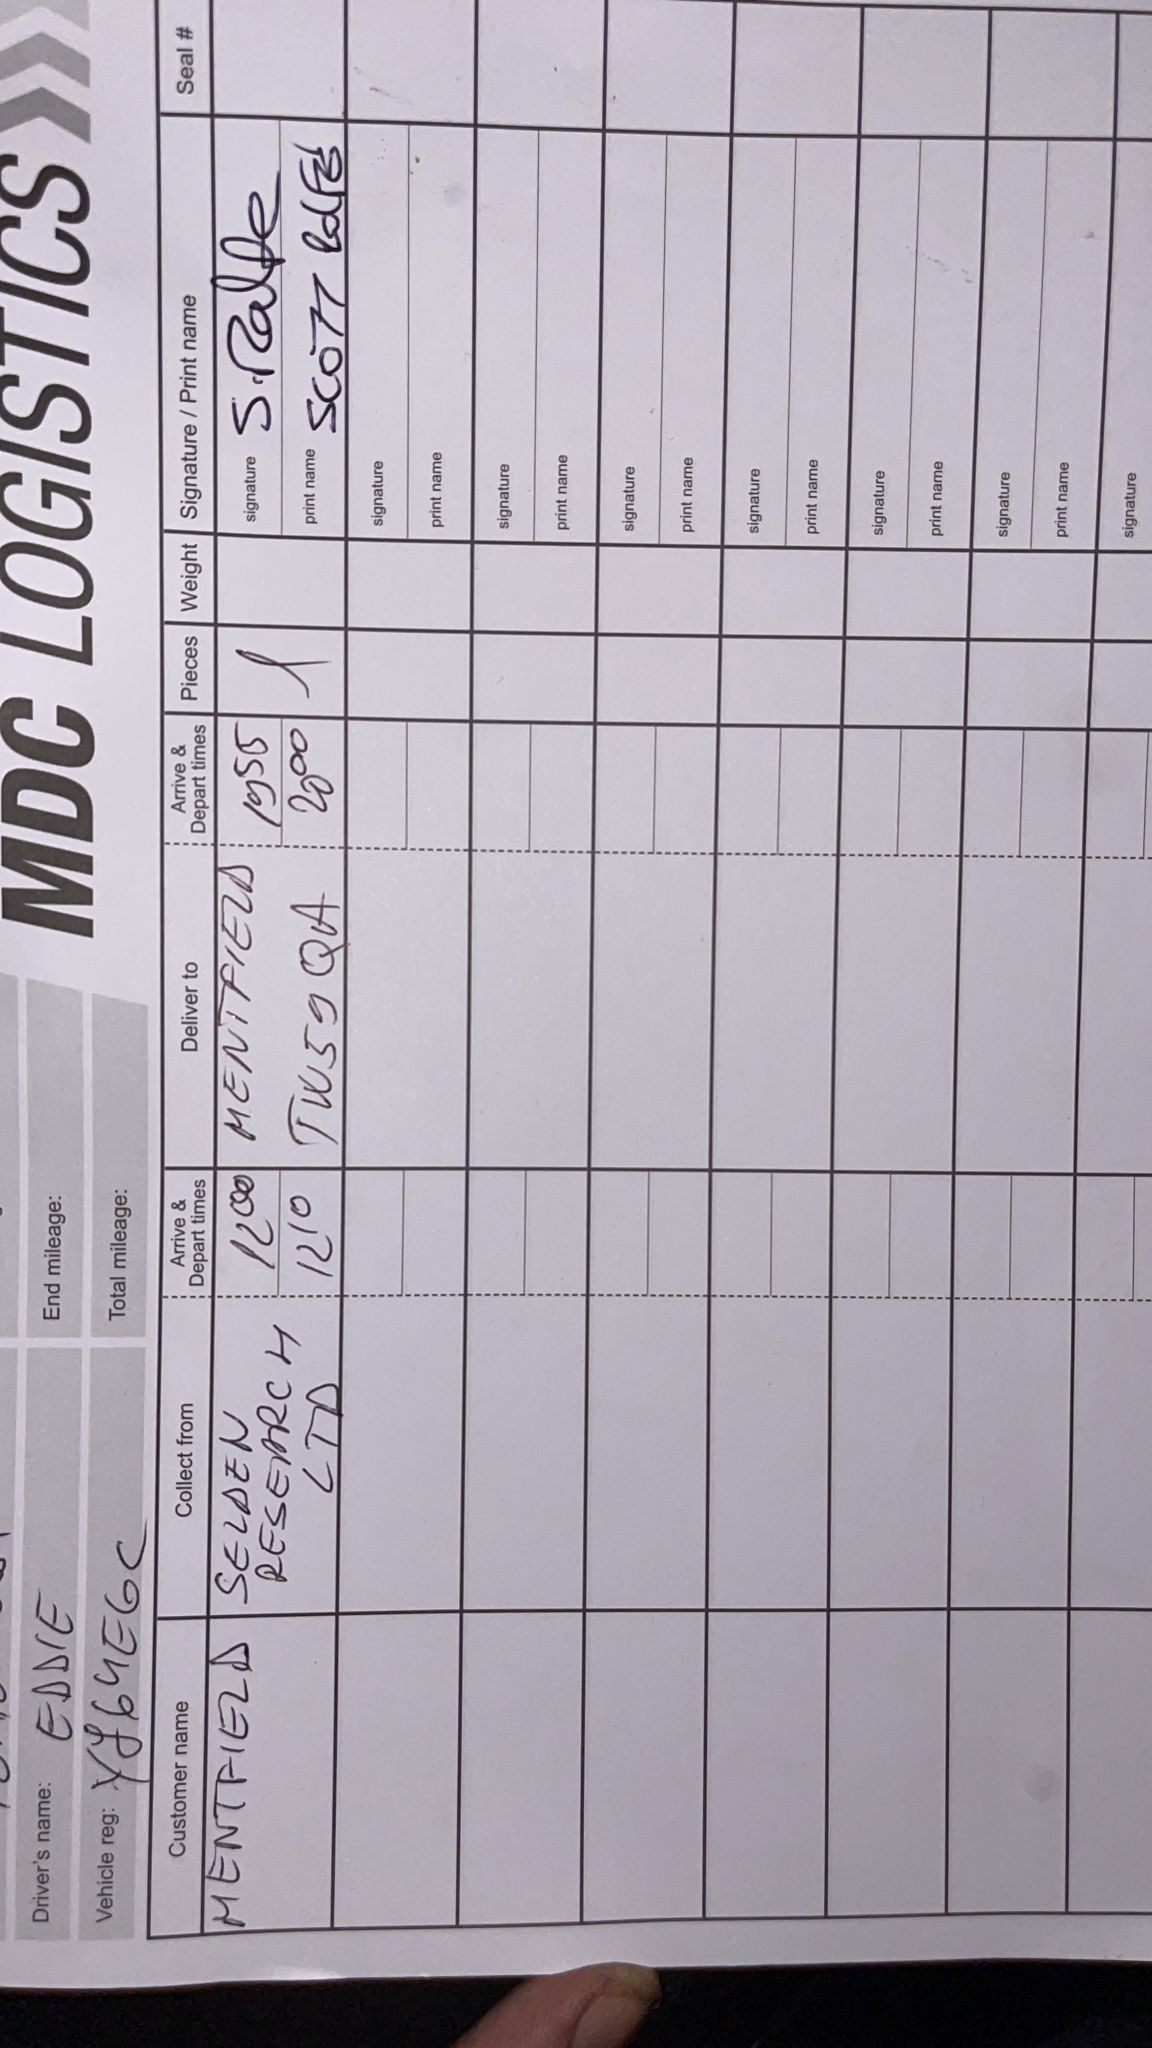 MDC LOGISTICS
Driver's name: EDDIE
End mileage:
Vehicle reg: YJ64EGC
Total mileage:
Customer name Collect from Arrive & Depart times Deliver to Arrive & Depart times Pieces Weight Signature / Print name Seal #
MENTFIELD SELDEN 1200 MENTFIELD 1955 1 signature S.Rolfe
RESEARCH
LTD 1210 TW59QA 2000 print name SCOTT Rolfe
signature
print name
signature
print name
signature
print name
signature
print name
signature
print name
signature
print name
signature